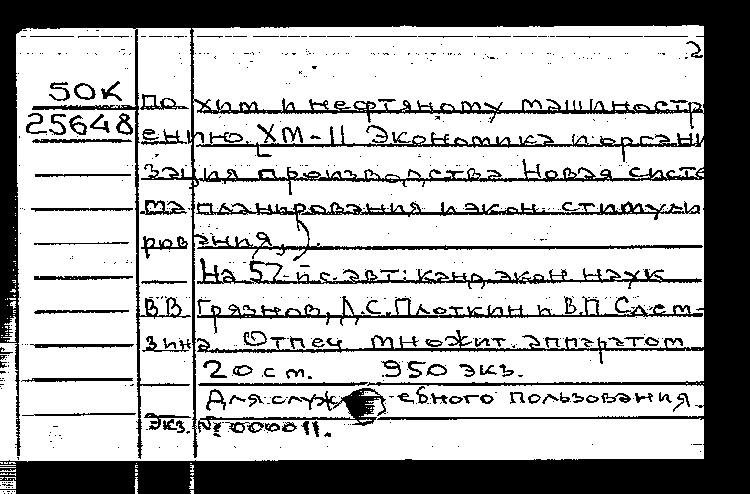 2
50К
25648
по хим. и нефтяному машиностр
ению. ХМ-11 Экономика и органи
зация производства. Новая систе
ма планирования и экон. стимули
рования,)
На 52-й с. авт: канд. экон. наук
В.В Грязнов, Л.С. Плоткин и В.П Слем-
зина. Отпеч множит. аппаратом
20 см. 950 экз.
Для служебного пользования.
Экз. № 000011.